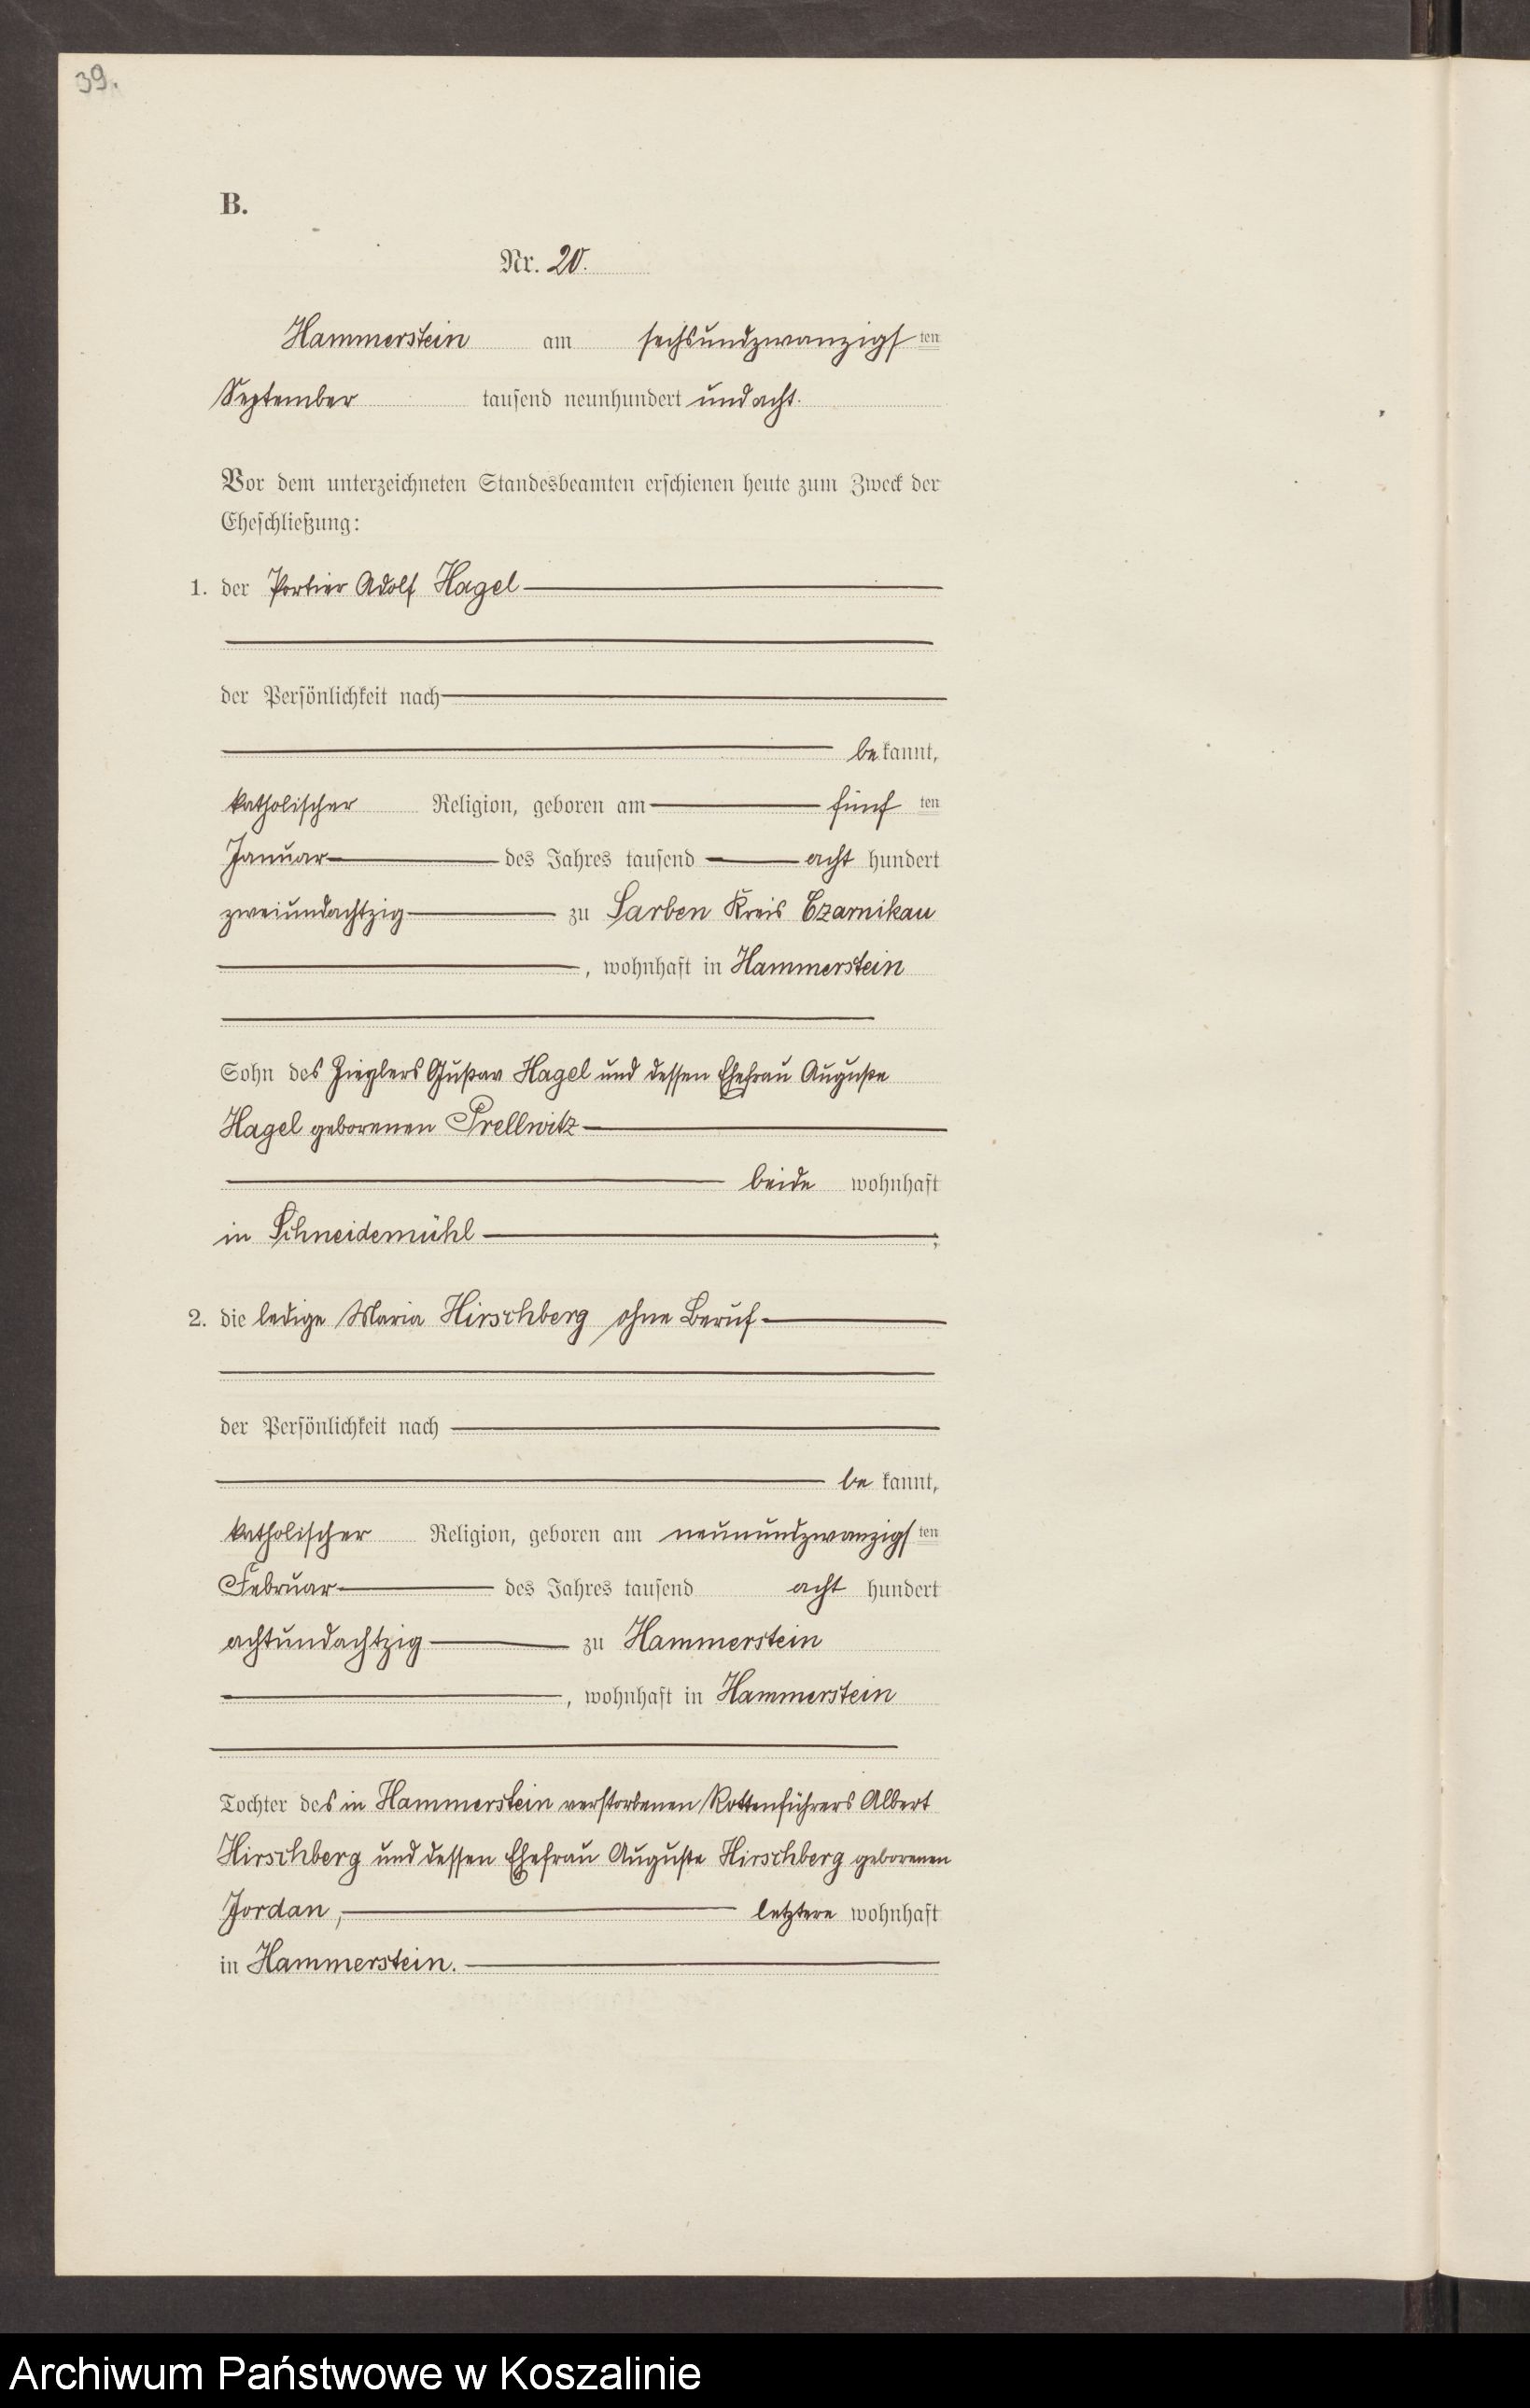 39.
B.
Nr. 20.
Hammerstein am sechsundzwanzigsten
September tausend neunhundert und acht.
Vor dem unterzeichneten Standesbeamten erschienen heute zum Zweck der
Eheschließung:
1. der Portier Adolf Hagel
der Persönlichkeit nach
bekannt,
katholischer Religion, geboren am fünften
Januar des Jahres tausend acht hundert
zweiundachtzig zu Sarben Kreis Czarnikau
, wohnhaft in Hammerstein
Sohn des Zieglers Gustav Hagel und dessen Ehefrau Auguste
Hagel geborenen Prellwitz
beide wohnhaft
in Schneidemühl ;
2. die ledige Maria Hirschberg ohne Beruf
der Persönlichkeit nach
bekannt,
katholischer Religion, geboren am neunundzwanzigsten
Februar des Jahres tausend acht hundert
achtundachtzig zu Hammerstein
, wohnhaft in Hammerstein
Tochter des in Hammerstein verstorbenen Rottenführers Albert
Hirschberg und dessen Ehefrau Auguste Hirschberg geborenen
Jordan, letztere wohnhaft
in Hammerstein.
Archiwum Państwowe w Koszalinie